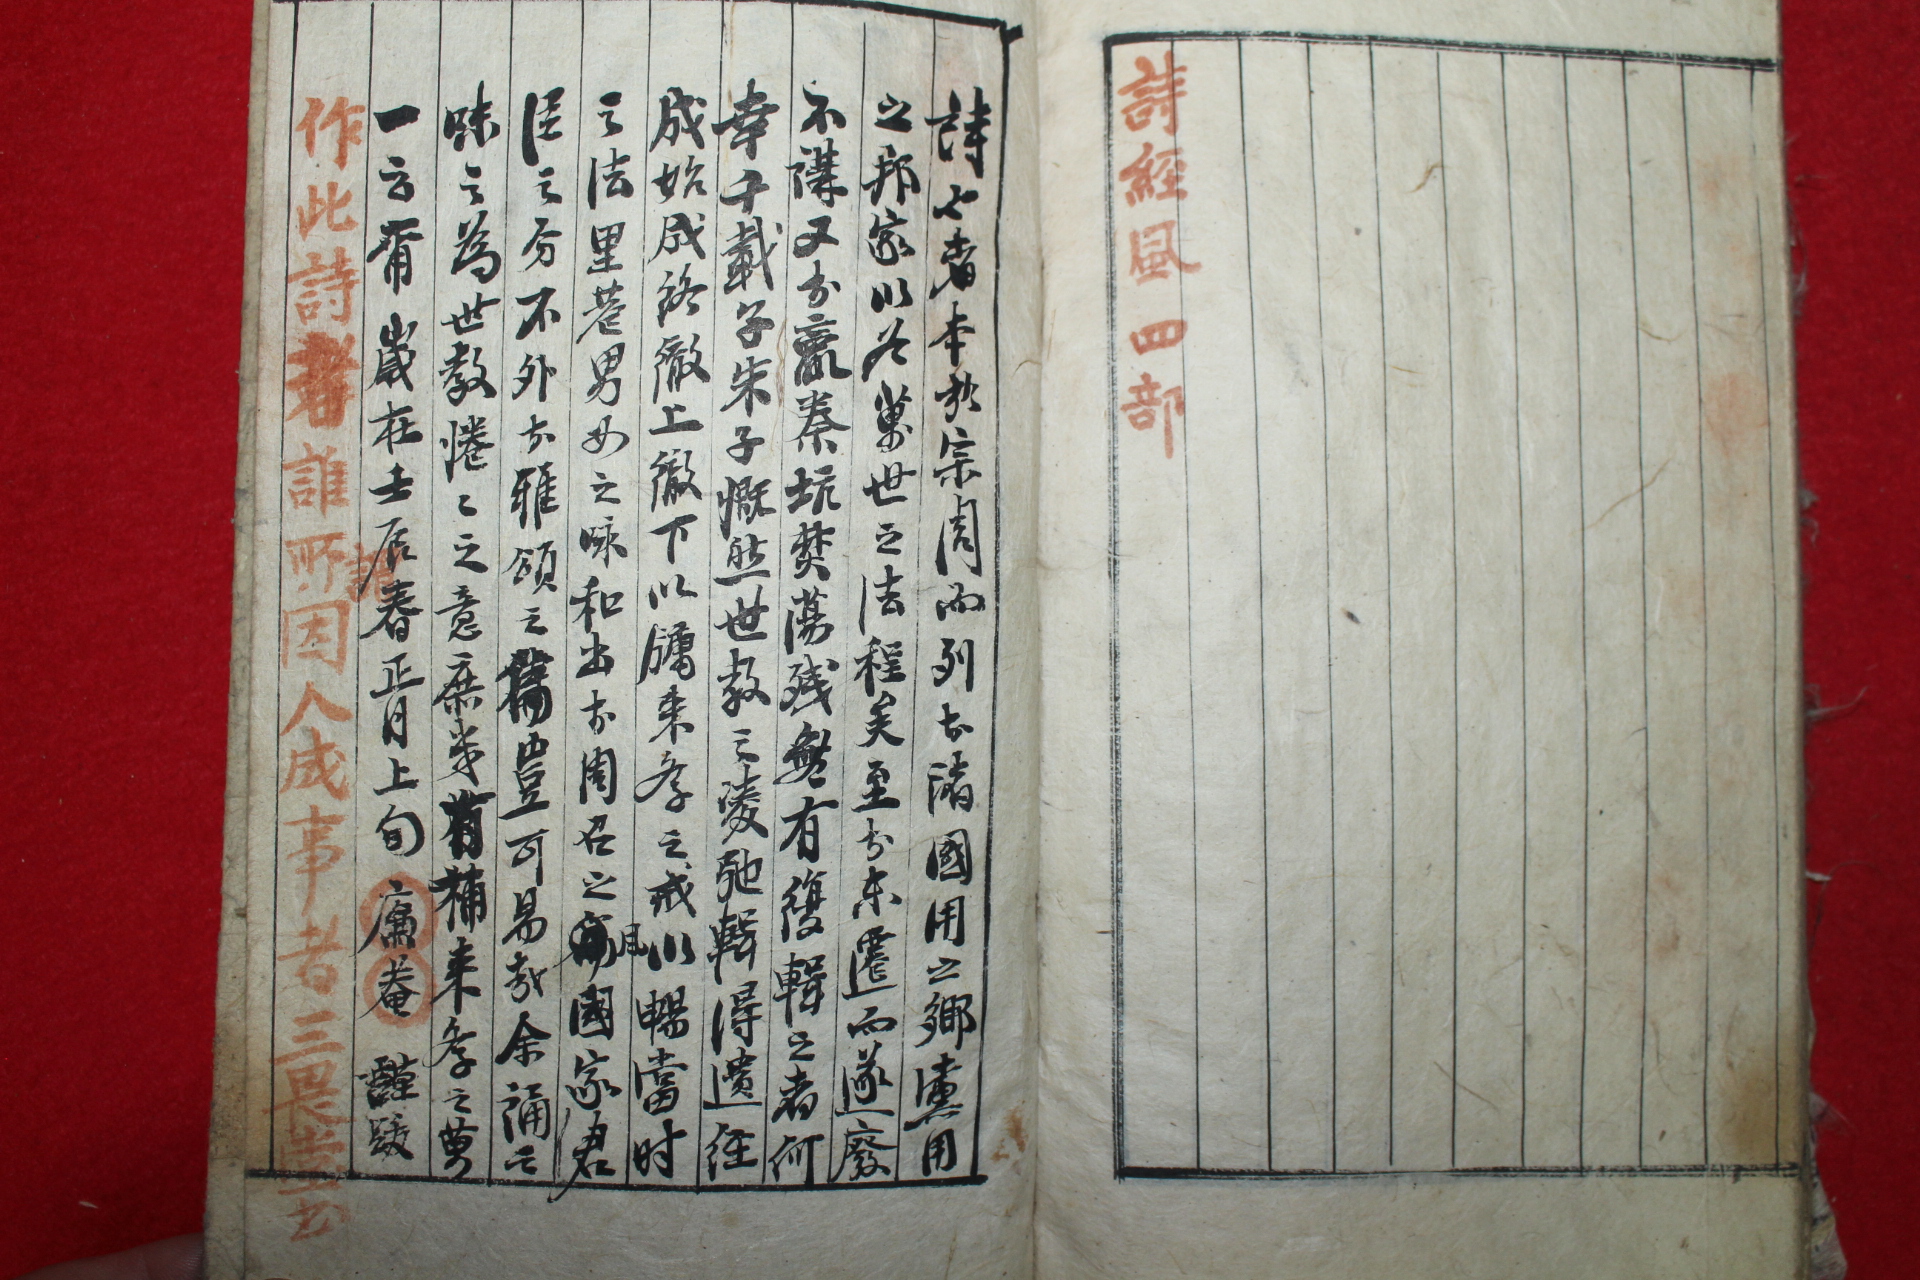 詩經風 四部
詩也者本於宗周而列於諸國用之鄉黨用
之邦家以爲萬世之法程矣至於東遷而遂廢
不講又於嬴秦坑焚蕩殘無有復輯之者何
幸千載子朱子慨然世教之凌弛輯得遺經
成始成終徹上徹下以牖來學之戒以暢當時
之法里巷男女之咏和出於周召之風國家君
臣之分不外於雅頌之篇豈可易哉余誦之
味之爲世教惓〻之意庶幾有補來學之萬
一云爾 歲在壬辰春正月上旬 庸菴 謹跋
作此詩者誰所因人成事者三畏堂云